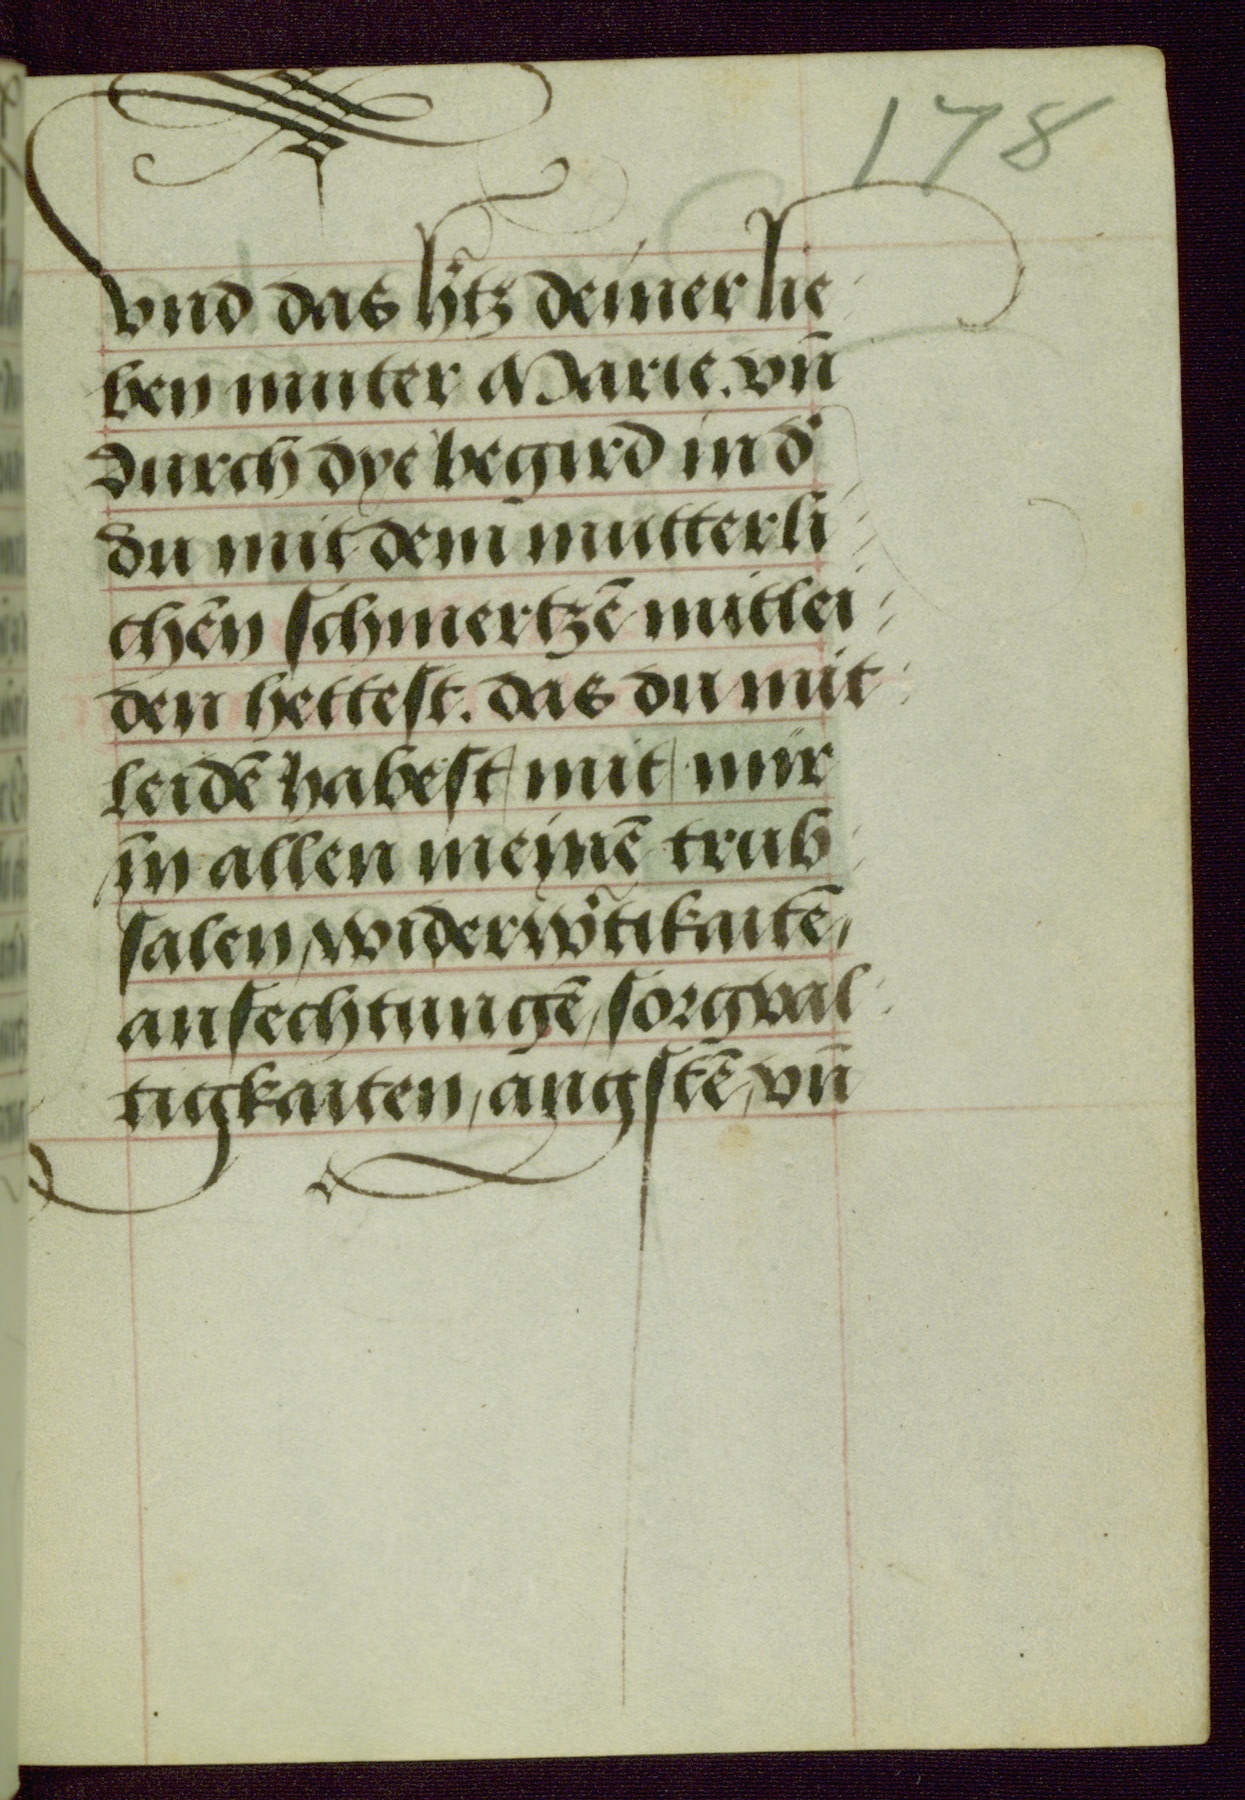 178
vnd das hr̃tz deiner lie
ben muter Marie. vn̄
durch dye begird in d̕
du mit dem̄ mutterli
chen̄ schmertzē mitlei
den hettest. das du mit
leidē habest mit mir
in allen meinē trub
salen, widerwr̃tikaitē,
anfechtungē, sorgval
tigkaiten, angstē, vn̄